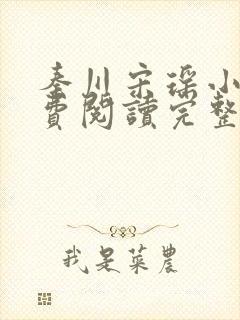 秦川宋瑶小
費閱讀完整
我是菜農